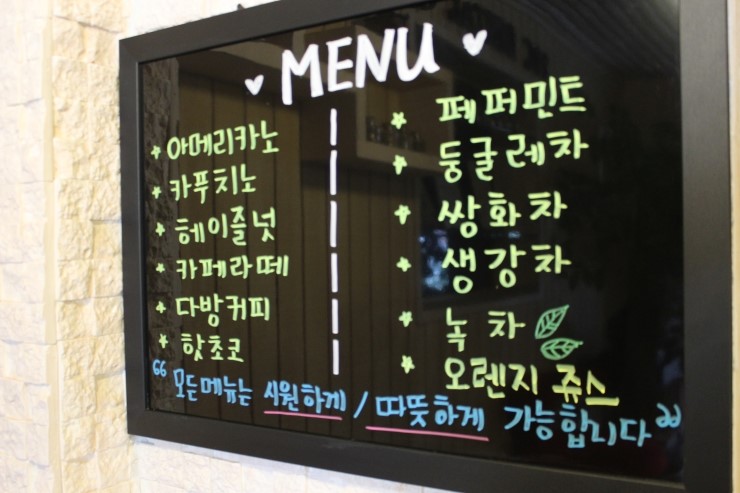 MENU
아메리카노
카푸치노
헤이즐넛
카페라떼
다방커피
핫초코
페퍼민트
둥굴레차
쌍화차
생강차
녹차
오렌지 쥬스
“모든메뉴는 시원하게 / 따뜻하게 가능합니다”